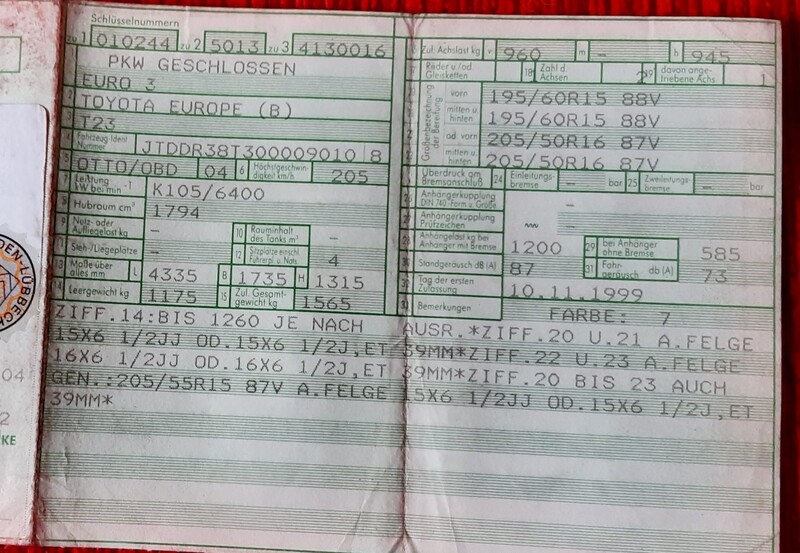 Schlüsselnummern
zu 1 010244 zu 2 5013 zu 3 4130016
PKW GESCHLOSSEN
EURO 3
2 TOYOTA EUROPE (B)
3 T23
4 Fahrzeug-Ident Nummer JTDDR38T300009010 8
5 OTTO/OBD 04 6 Höchstgeschwindigkeit km/h 205
7 Leistung kW bei min⁻¹ K105/6400
8 Hubraum cm³ 1794
9 Nutz- oder Aufliegelast kg – 10 Rauminhalt des Tanks m³ –
11 Steh-/Liegeplätze – 12 Sitzplätze einschl. Führerpl. u. Nots. 4
13 Maße über alles mm L 4335 B 1735 H 1315
14 Leergewicht kg 1175 15 Zul. Gesamtgewicht kg 1565
Zul. Achslast kg v 960 m – h 945
Räder u/od Gleisketten 18 Zahl d. Achsen 2 19 davon angetriebene Achs 1
Größenbezeichnung der Bereifung
vorn 195/60R15 88V
mitten u hinten 195/60R15 88V
od. vorn 205/50R16 87V
mitten u hinten 205/50R16 87V
Überdruck am Bremsanschluß 24 Einleitungsbremse – bar 25 Zweileitungsbremse – bar
26 Anhängerkupplung DIN 740 -Form u. Größe –
27 Anhängerkupplung Prüfzeichen –
28 Anhängelast kg bei Anhänger mit Bremse 1200 29 bei Anhänger ohne Bremse 585
30 Standgeräusch dB (A) 87 31 Fahrgeräusch db (A) 73
Tag der ersten Zulassung 10.11.1999
33 Bemerkungen FARBE: 7
ZIFF.14:BIS 1260 JE NACH AUSR.*ZIFF.20 U.21 A.FELGE
15X6 1/2JJ OD.15X6 1/2J,ET 39MM*ZIFF.22 U.23 A.FELGE
16X6 1/2JJ OD.16X6 1/2J,ET 39MM*ZIFF.20 BIS 23 AUCH
GEN.:205/55R15 87V A.FELGE 15X6 1/2JJ OD.15X6 1/2J,ET
39MM*
DEN-LÜBBECK
04
2
KE